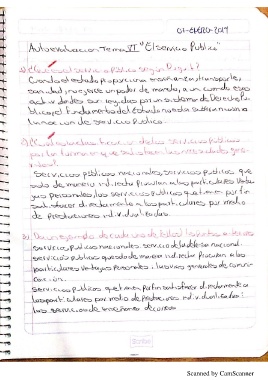 01-ENERO-2019
Autoevaluacion Tema VI "El servicio Publico"
1) ¿Que es el servicio Público según Duguit?
Cuando el estado proporciona enseñanza, transporte,
sanidad, no ejerce un poder de mando, aun cuando esas
actividades son regidas por un sistema de Derecho Pu
blico, el fundamento del Estado no es la soberania sino
la nocion de servicio Publico.
los servicios publicos
por la forma en que satisfacen las necesidades gene
rales?
Servicios públicos nacionales, servicios publicos que
solo de manera indirecta procuran a los particulares venta
jas personales, los servicios publicos que tienen por fin
satisfacer directamente a los particulares por medio
de Prestaciones individualizadas.
3) De un ejemplo de cada uno de
servicios Publicos nacionales. servicio de la defensa nacional.
servicios publicos que solo de manera indirecta Procuran a los
particulares ventajas Personales: los servicios generales de comuni-
cación.
servicios Publicos que tienen por fin satisfacer directamente a
los particulares por medio de Prestaciones individualizadas:
los servicios de enseñanza de correos
Scribe
Scanned by CamScanner